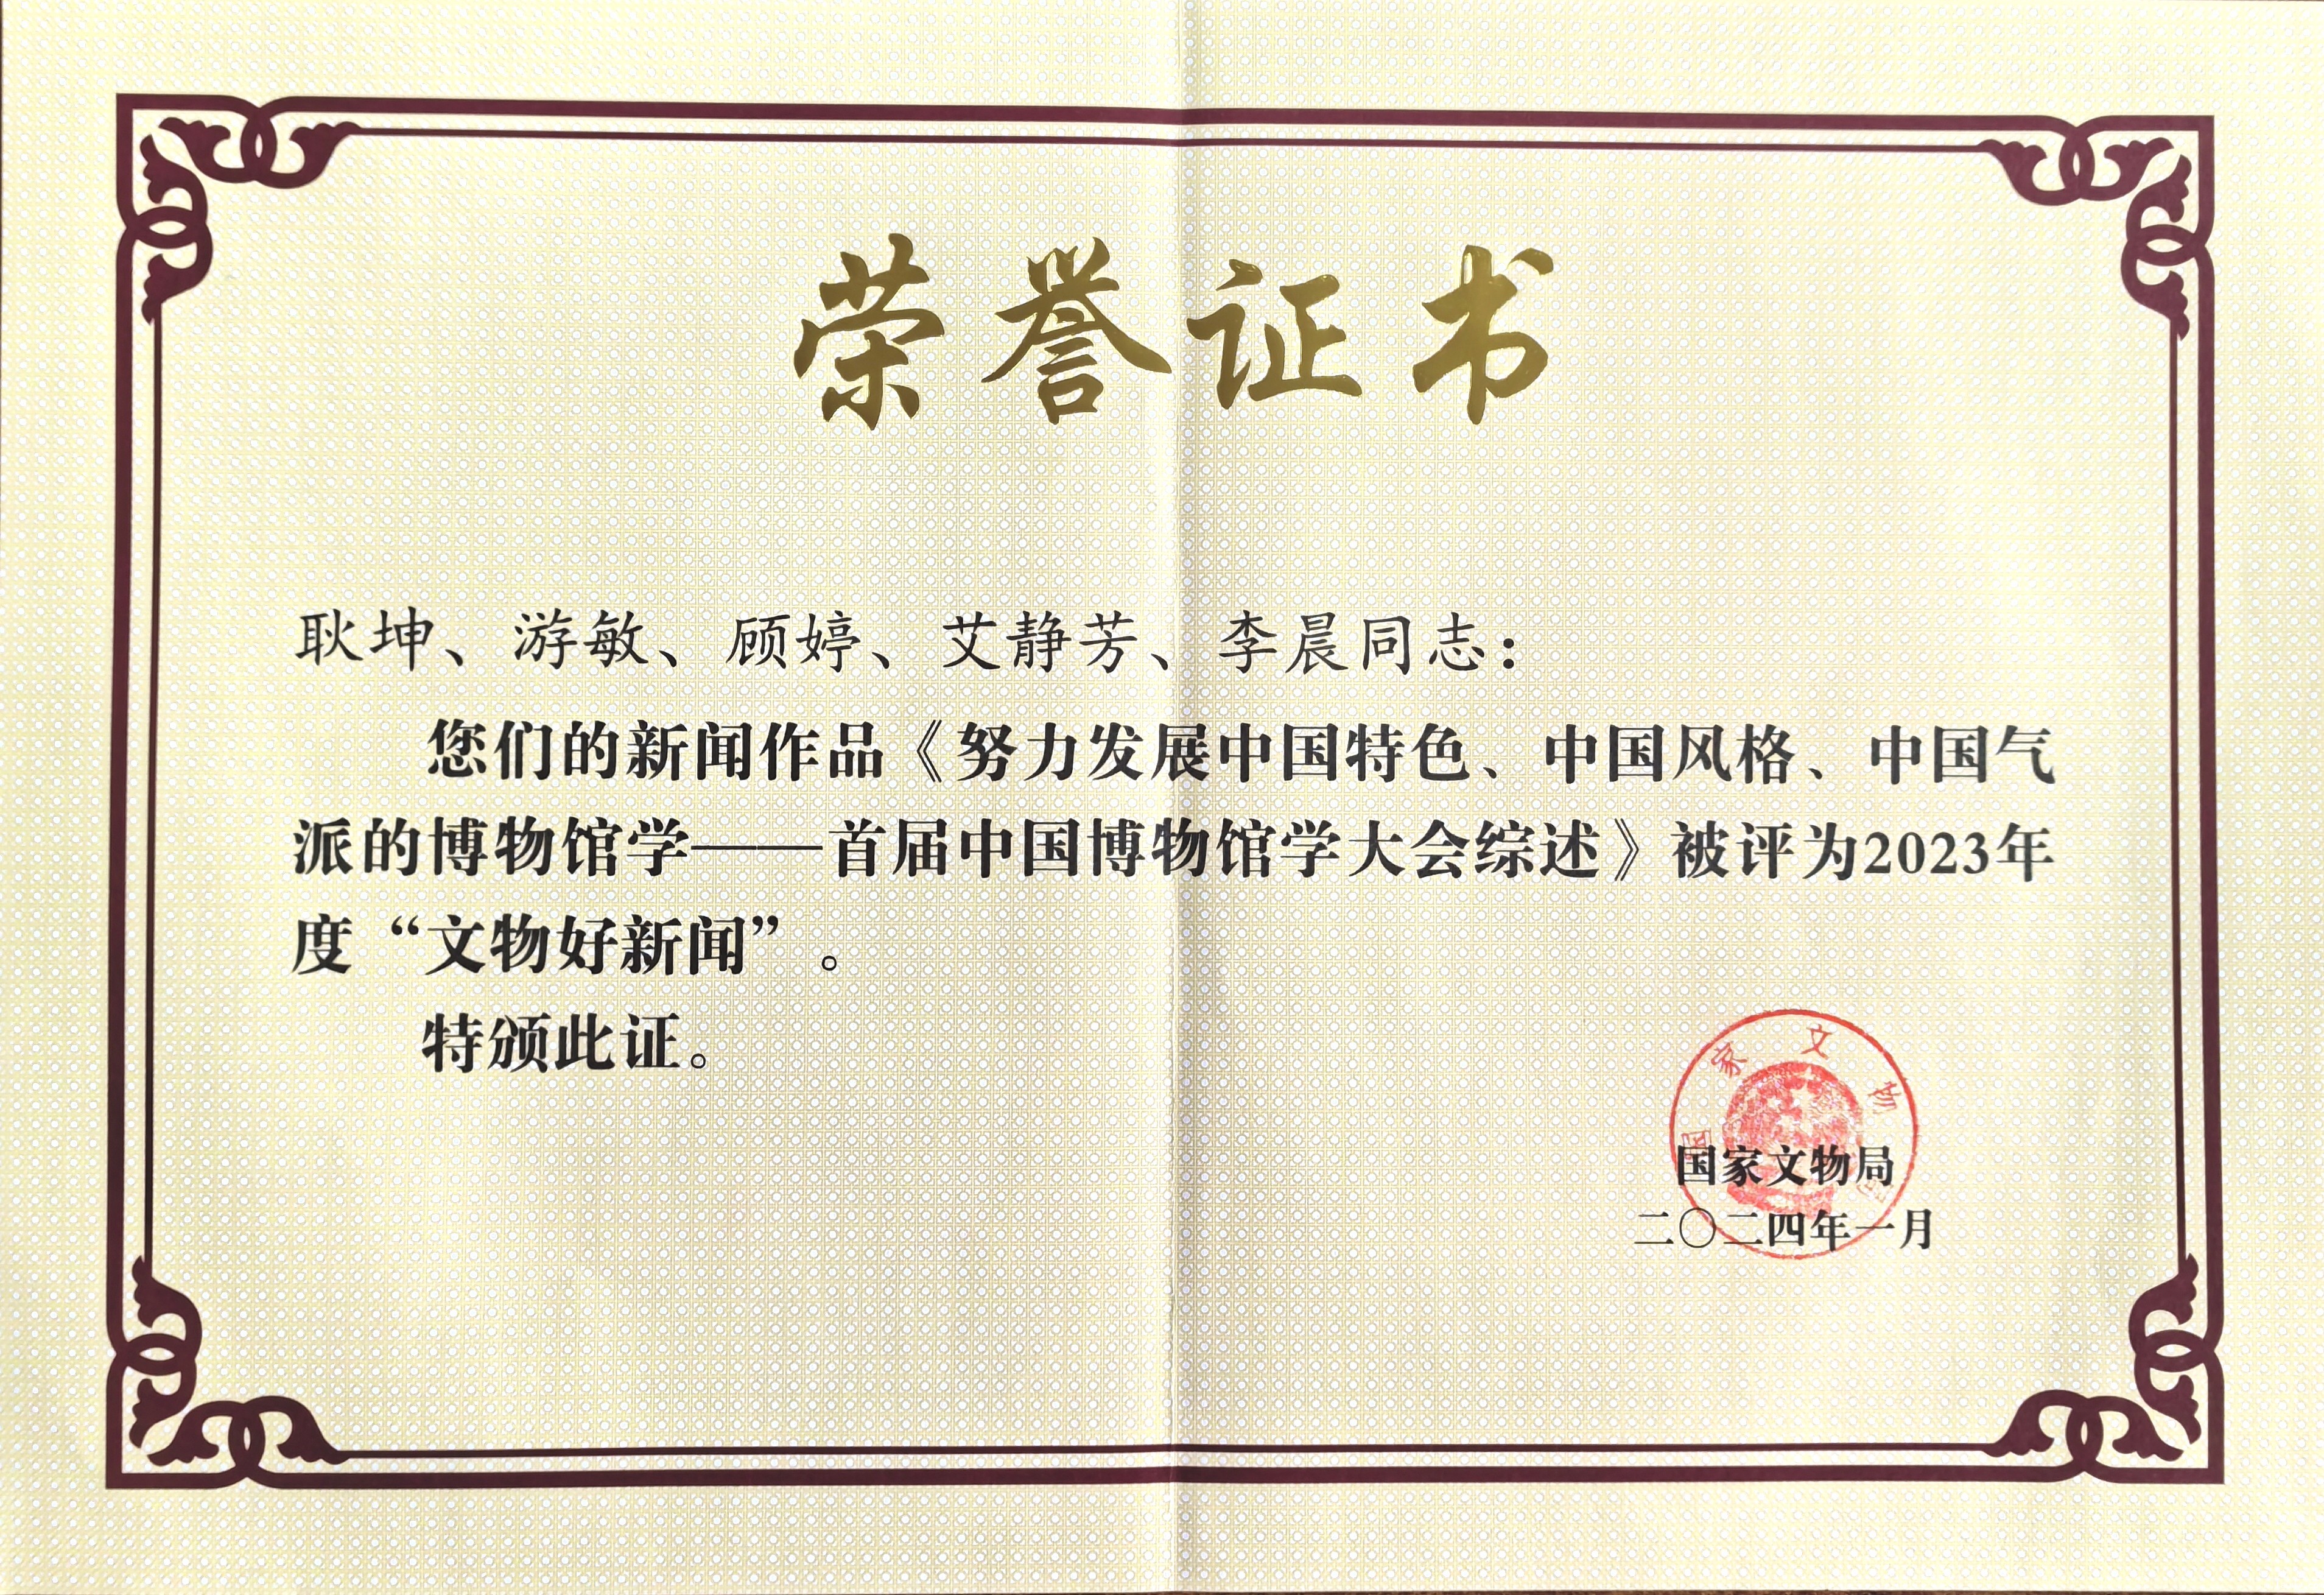 荣誉证书
耿坤、游敏、顾婷、艾静芳、李晨同志：
您们的新闻作品《努力发展中国特色、中国风格、中国气
派的博物馆学——首届中国博物馆学大会综述》被评为2023年
度“文物好新闻”。
特颁此证。
国家文物局
国家文物局
二〇二四年一月